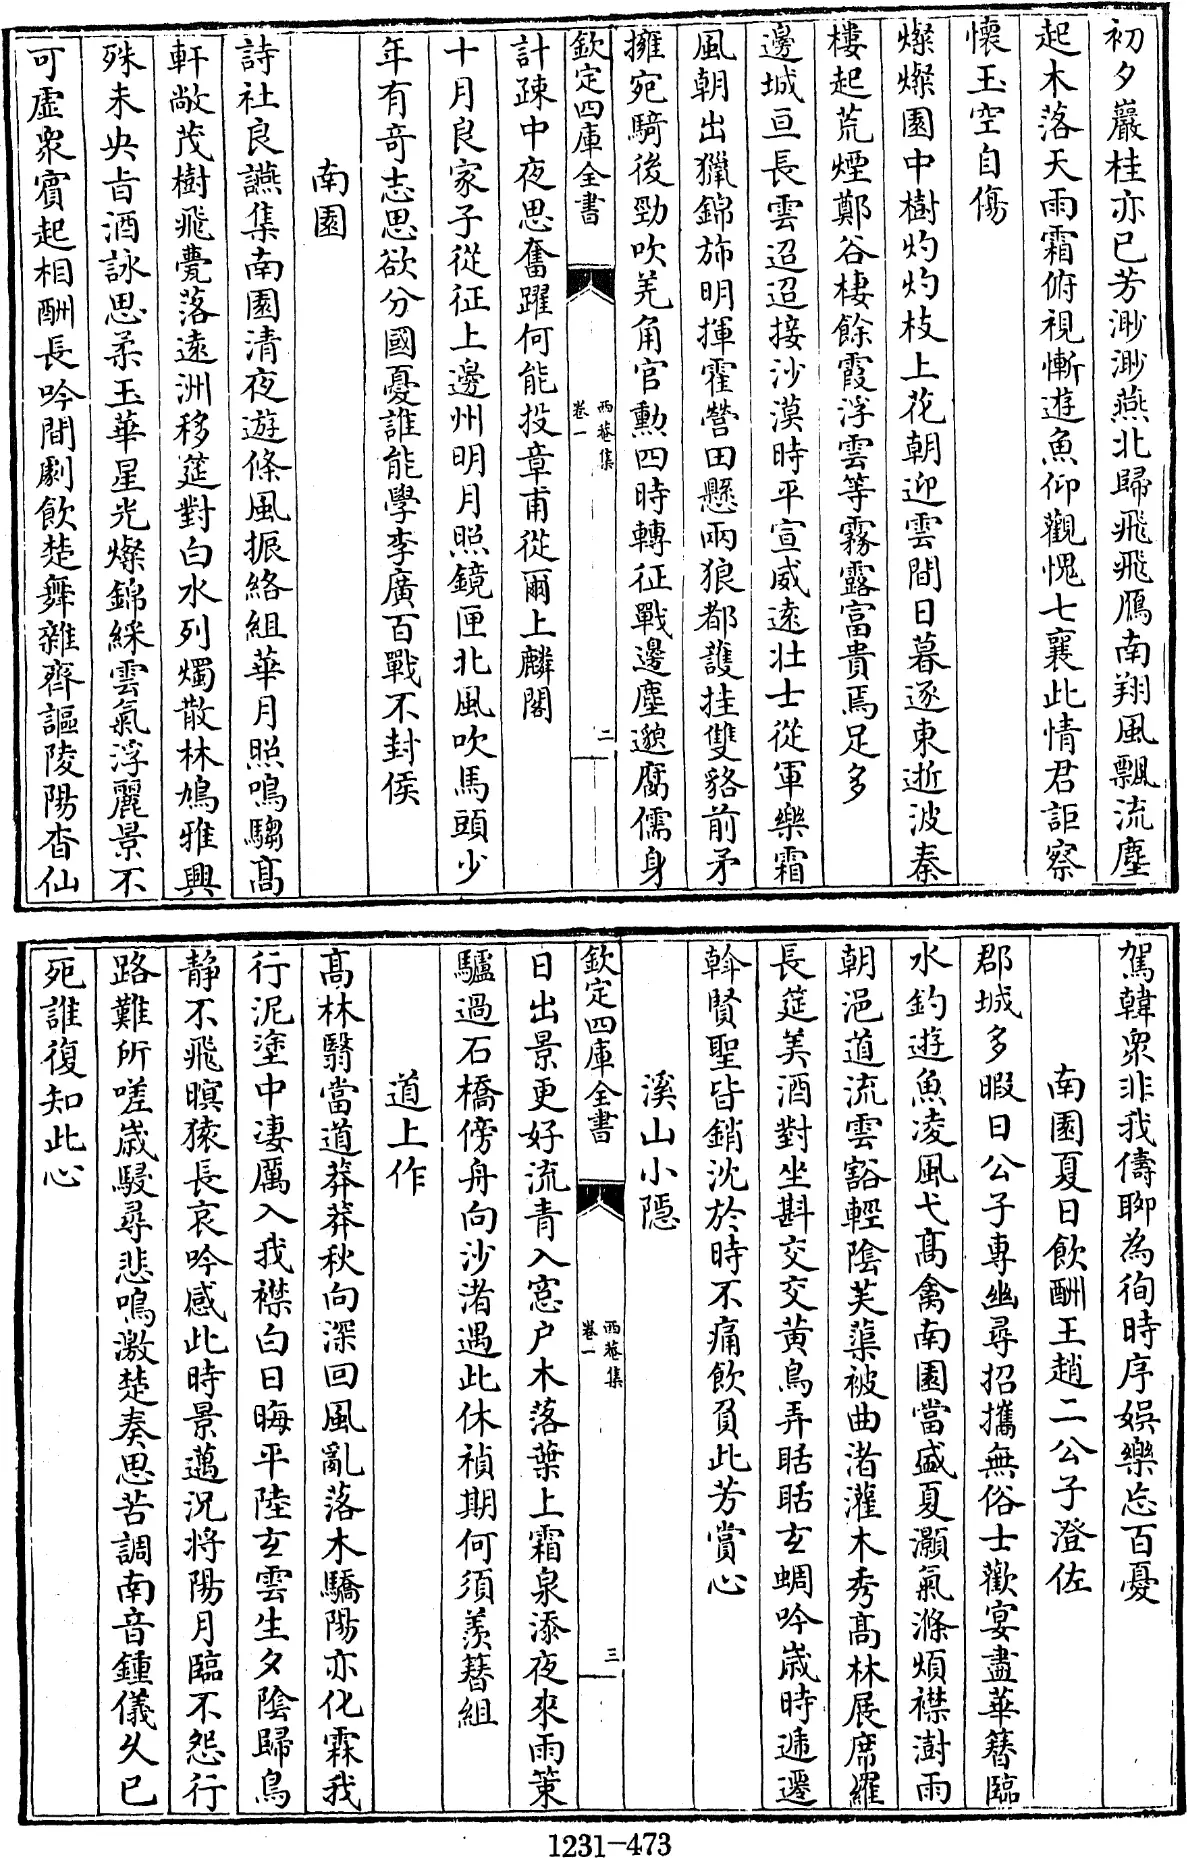 初夕巖桂亦已芳渺渺燕北歸飛飛鴈南翔風飄流塵
起木落天雨霜俯視慚遊魚仰觀愧七襄此情君詎察
懷玉空自傷
燦燦園中樹灼灼枝上花朝迎雲間日暮逐東逝波秦
樓起荒煙鄭谷棲餘霞浮雲等霧露富貴焉足多
邊城亘長雲迢迢接沙漠時平宣威遠壯士從軍樂霜
風朝出獵錦斾明揮霍營田懸兩狼都護挂雙貉前矛
擁宛騎後勁吹羌角官勲四時轉征戰邊塵邈腐儒身
欽定四庫全書
西菴集
卷一
二
計疎中夜思奮躍何能投章甫從爾上麟閣
十月良家子從征上邊州明月照鏡匣北風吹馬頭少
年有奇志思欲分國憂誰能學李廣百戰不封侯
南園
詩社良讌集南園清夜遊條風振絡組華月照鳴騶髙
軒敞茂樹飛甍落遠洲移筵對白水列燭散林鳩雅興
殊未央㫖酒詠思柔玉華星光燦錦綵雲氣浮麗景不
可虛衆賓起相酬長吟間劇飲楚舞雜齊謳陵陽杳仙
駕韓衆非我儔聊為徇時序娯樂忘百憂
南園夏日飲酬王趙二公子澄佐
郡城多暇日公子專幽尋招攜無俗士歡宴盡華簪臨
水釣遊魚凌風弋髙禽南園當盛夏灝氣滌煩襟澍雨
朝浥道流雲豁輕陰芙蕖被曲渚灌木秀髙林展席羅
長筵美酒對坐斟交交黄鳥弄聒聒玄蜩吟嵗時遞遷
斡賢聖皆銷沈於時不痛飲負此芳賞心
溪山小隠
欽定四庫全書
西菴集
卷一
三
日出景更好流青入窓户木落葉上霜泉添夜來雨策
驢過石橋傍舟向沙渚遇此休禎期何須羨簪組
道上作
髙林翳當道莽莽秋向深回風亂落木驕陽亦化霖我
行泥塗中凄厲入我襟白日晦平陸玄雲生夕陰歸鳥
静不飛暝猿長哀吟感此時景邁況将陽月臨不怨行
路難所嗟嵗駸尋悲鳴激楚奏思苦調南音鍾儀久已
死誰復知此心
1231-473